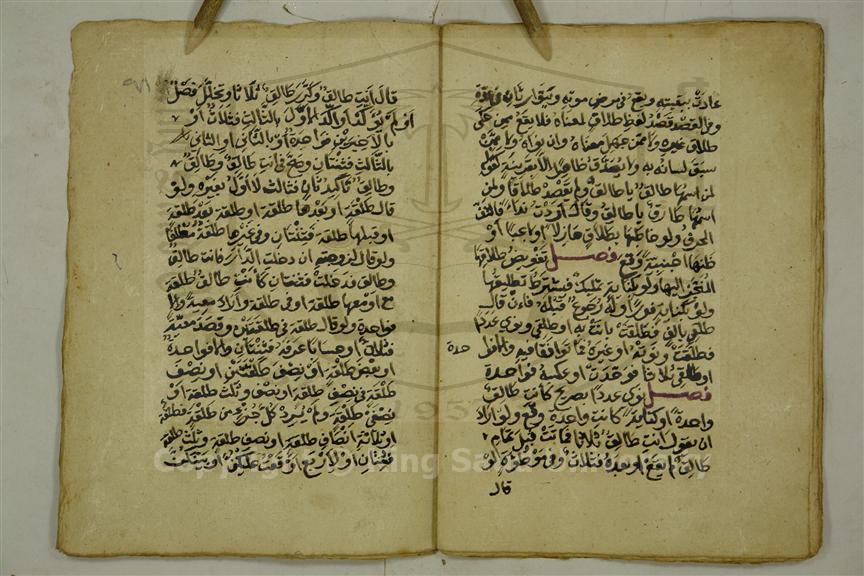 عادت ببقيته ويقع في مرض موته ويتوارثان في عدة
وفي القصد قصد لفظ طلاق لمعناه فلا يقع ممن حكى
طلاق غيره ولا ممن جهل معناه وان نواه ولا ممن
سبق لسانه به ولا يصدق ظاهرا الا بقرينة كقوله
لمن اسمها طالق يا طالق ولم يقصد طلاقا ولمن
اسمها طارق يا طالق وقال اردت نداء فالتف
الحرف ولو خاطبها بطلاق هازلا او لاعبا او
ظنها اجنبية وقع فصل تفويض طلاقها
المنجز اليها ولو بكناية تمليك فيشترط تطليقها
ولو بكناية فورا وله رجوع قبله فان قال
طلقي بالف فطلقت بانت به او طلقي ونوى عددا
فطلقت ونوته او غيره فما توافقا فيه والا فوا
حدة
او طلقي ثلاثا فوحدت او عكسه فواحدة
فصل نوى عددا بصريح كانت طالق
واحدة او كناية كانت واحدة وقع ولو اراد
ان يقول انت طالق ثلاثا فماتت قبل تمام
طالق لم يقع او بعده فثلاث وفي موطؤة لو
قال
قال انت طالق وكرر طالق ثلاثا وتخلل فصل
او لم يؤكد او اكد الاول بالثالث فثلاث او
بالاخيرين فواحدة او بالثاني او الثاني
بالثالث فثنتان وصح في انت طالق وطالق
وطالق تاكيد ثاني بثالث لا اول بغيره ولو
قال طلقة او بعدها طلقة او طلقة بعد طلقة
او قبلها طلقة فثنتان وفي غيرها طلقة مطلقا
ولو قال لزوجته ان دخلت الدار فانت طالق
وطالق فدخلت فثنتان كانت طالق طلقة
مع او معها طلقة او في طلقة واراد معية والا
فواحدة ولو قال طلقة في طلقتين وقصد معية
فثلاث او حسابا عرفه فثنتان والا فواحدة
او بعض طلقة او نصف طلقتين او نصف
طلقة في نصف طلقة او نصف وثلث طلقة او
نصفي طلقة ولم يرد كل جزء من طلقة فطلقة
او ثلاثة انصاف طلقة او نصف طلقة وثلث طلقة
فثنتان او لاربع اوقعت عليكن او بينكن
Copyright © King Saud University